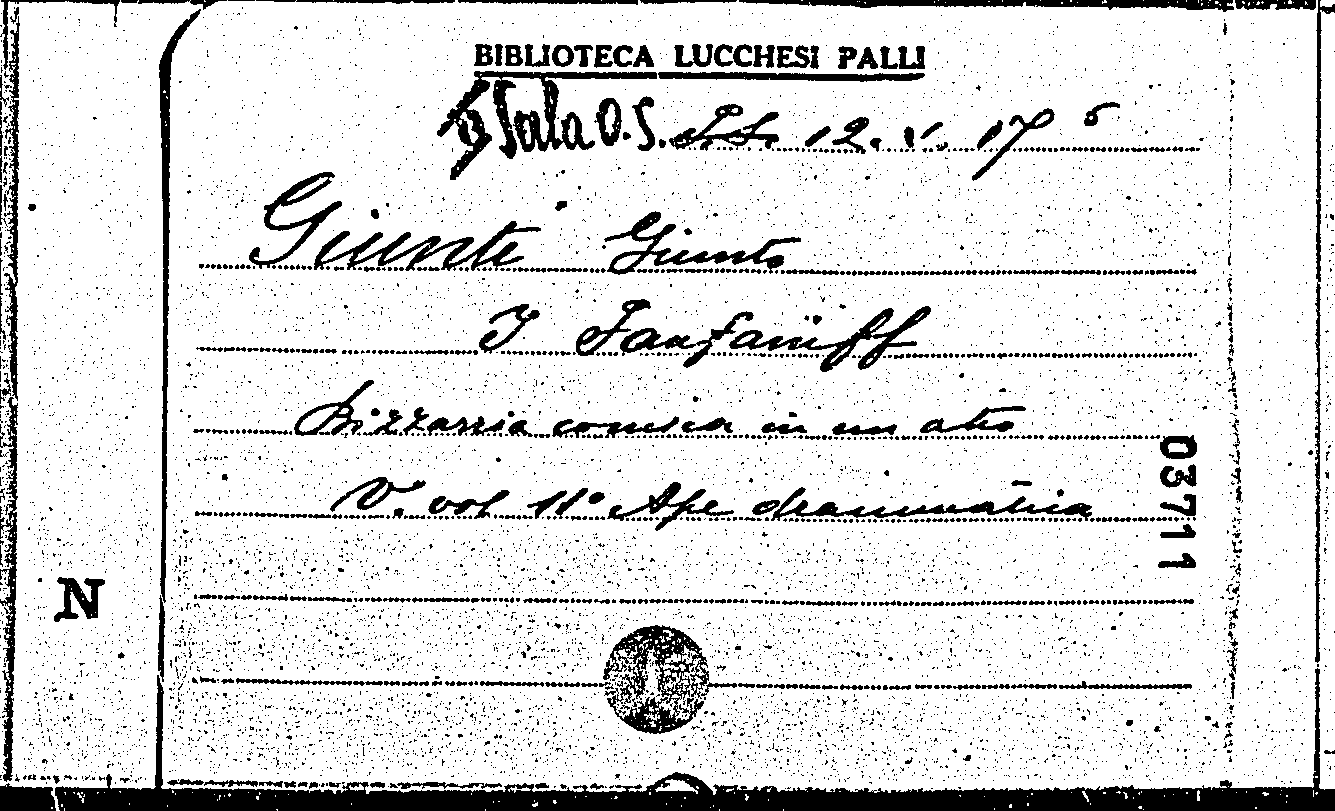 BIBLIOTECA LUCCHESI PALLI
Sala O.S. S.S. 12. V. 17 5
Giunti Giunto
I Fanfaniff
Bizzarria comica in un atto
V. vol 11° Ape drammatica
03711
N